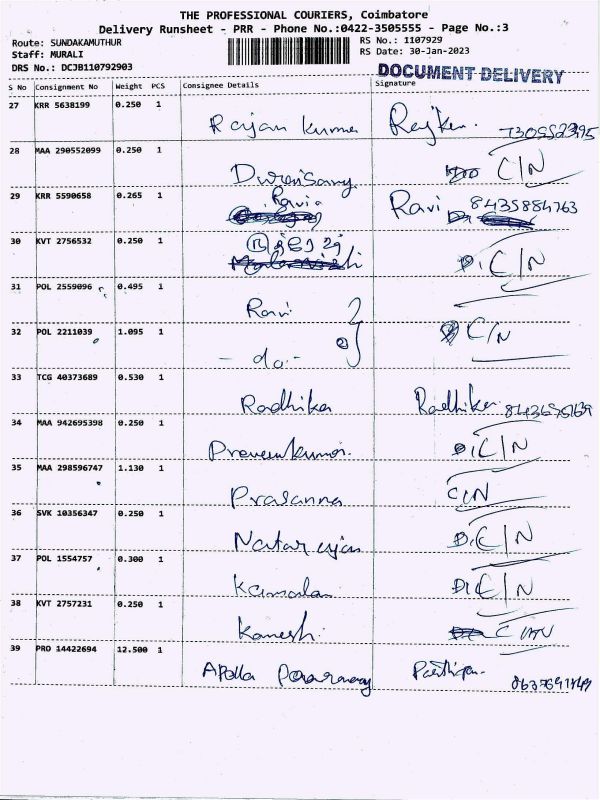 THE PROFESSIONAL COURIERS, Coimbatore
Delivery Runsheet - PRR - Phone No.:0422-3505555 - Page No.:3
Route: SUNDAKAMUTHUR
Staff: MURALI
DRS No.: DCJB110792903
RS No.: 1107929
RS Date: 30-Jan-2023
DOCUMENT DELIVERY
S No Consignment No Weight PCS Consignee Details Signature
27 KRR 5638199 0.250 1
Rajan Kumar
28 MAA 290552099 0.250 1
Duraisamy C/N
29 KRR 5590658 0.265 1
Ravi Ravi 8435884763
30 KVT 2756532 0.250 1
C/N
31 POL 2559096 0.495 1
Ravi
32 POL 2211039 1.095 1
C/N
- do -
33 TCG 40373689 0.530 1
Radhika Radhika
34 MAA 942695398 0.250 1
Praveenkumar. C/N
35 MAA 298596747 1.130 1
Prasanna C/N
36 SVK 10356347 0.250 1
Natarajan C/N
37 POL 1554757 0.300 1
Kamalan C/N
38 KVT 2757231 0.250 1
Kamesh. C/N
39 PRO 14422694 12.500 1
Apollo